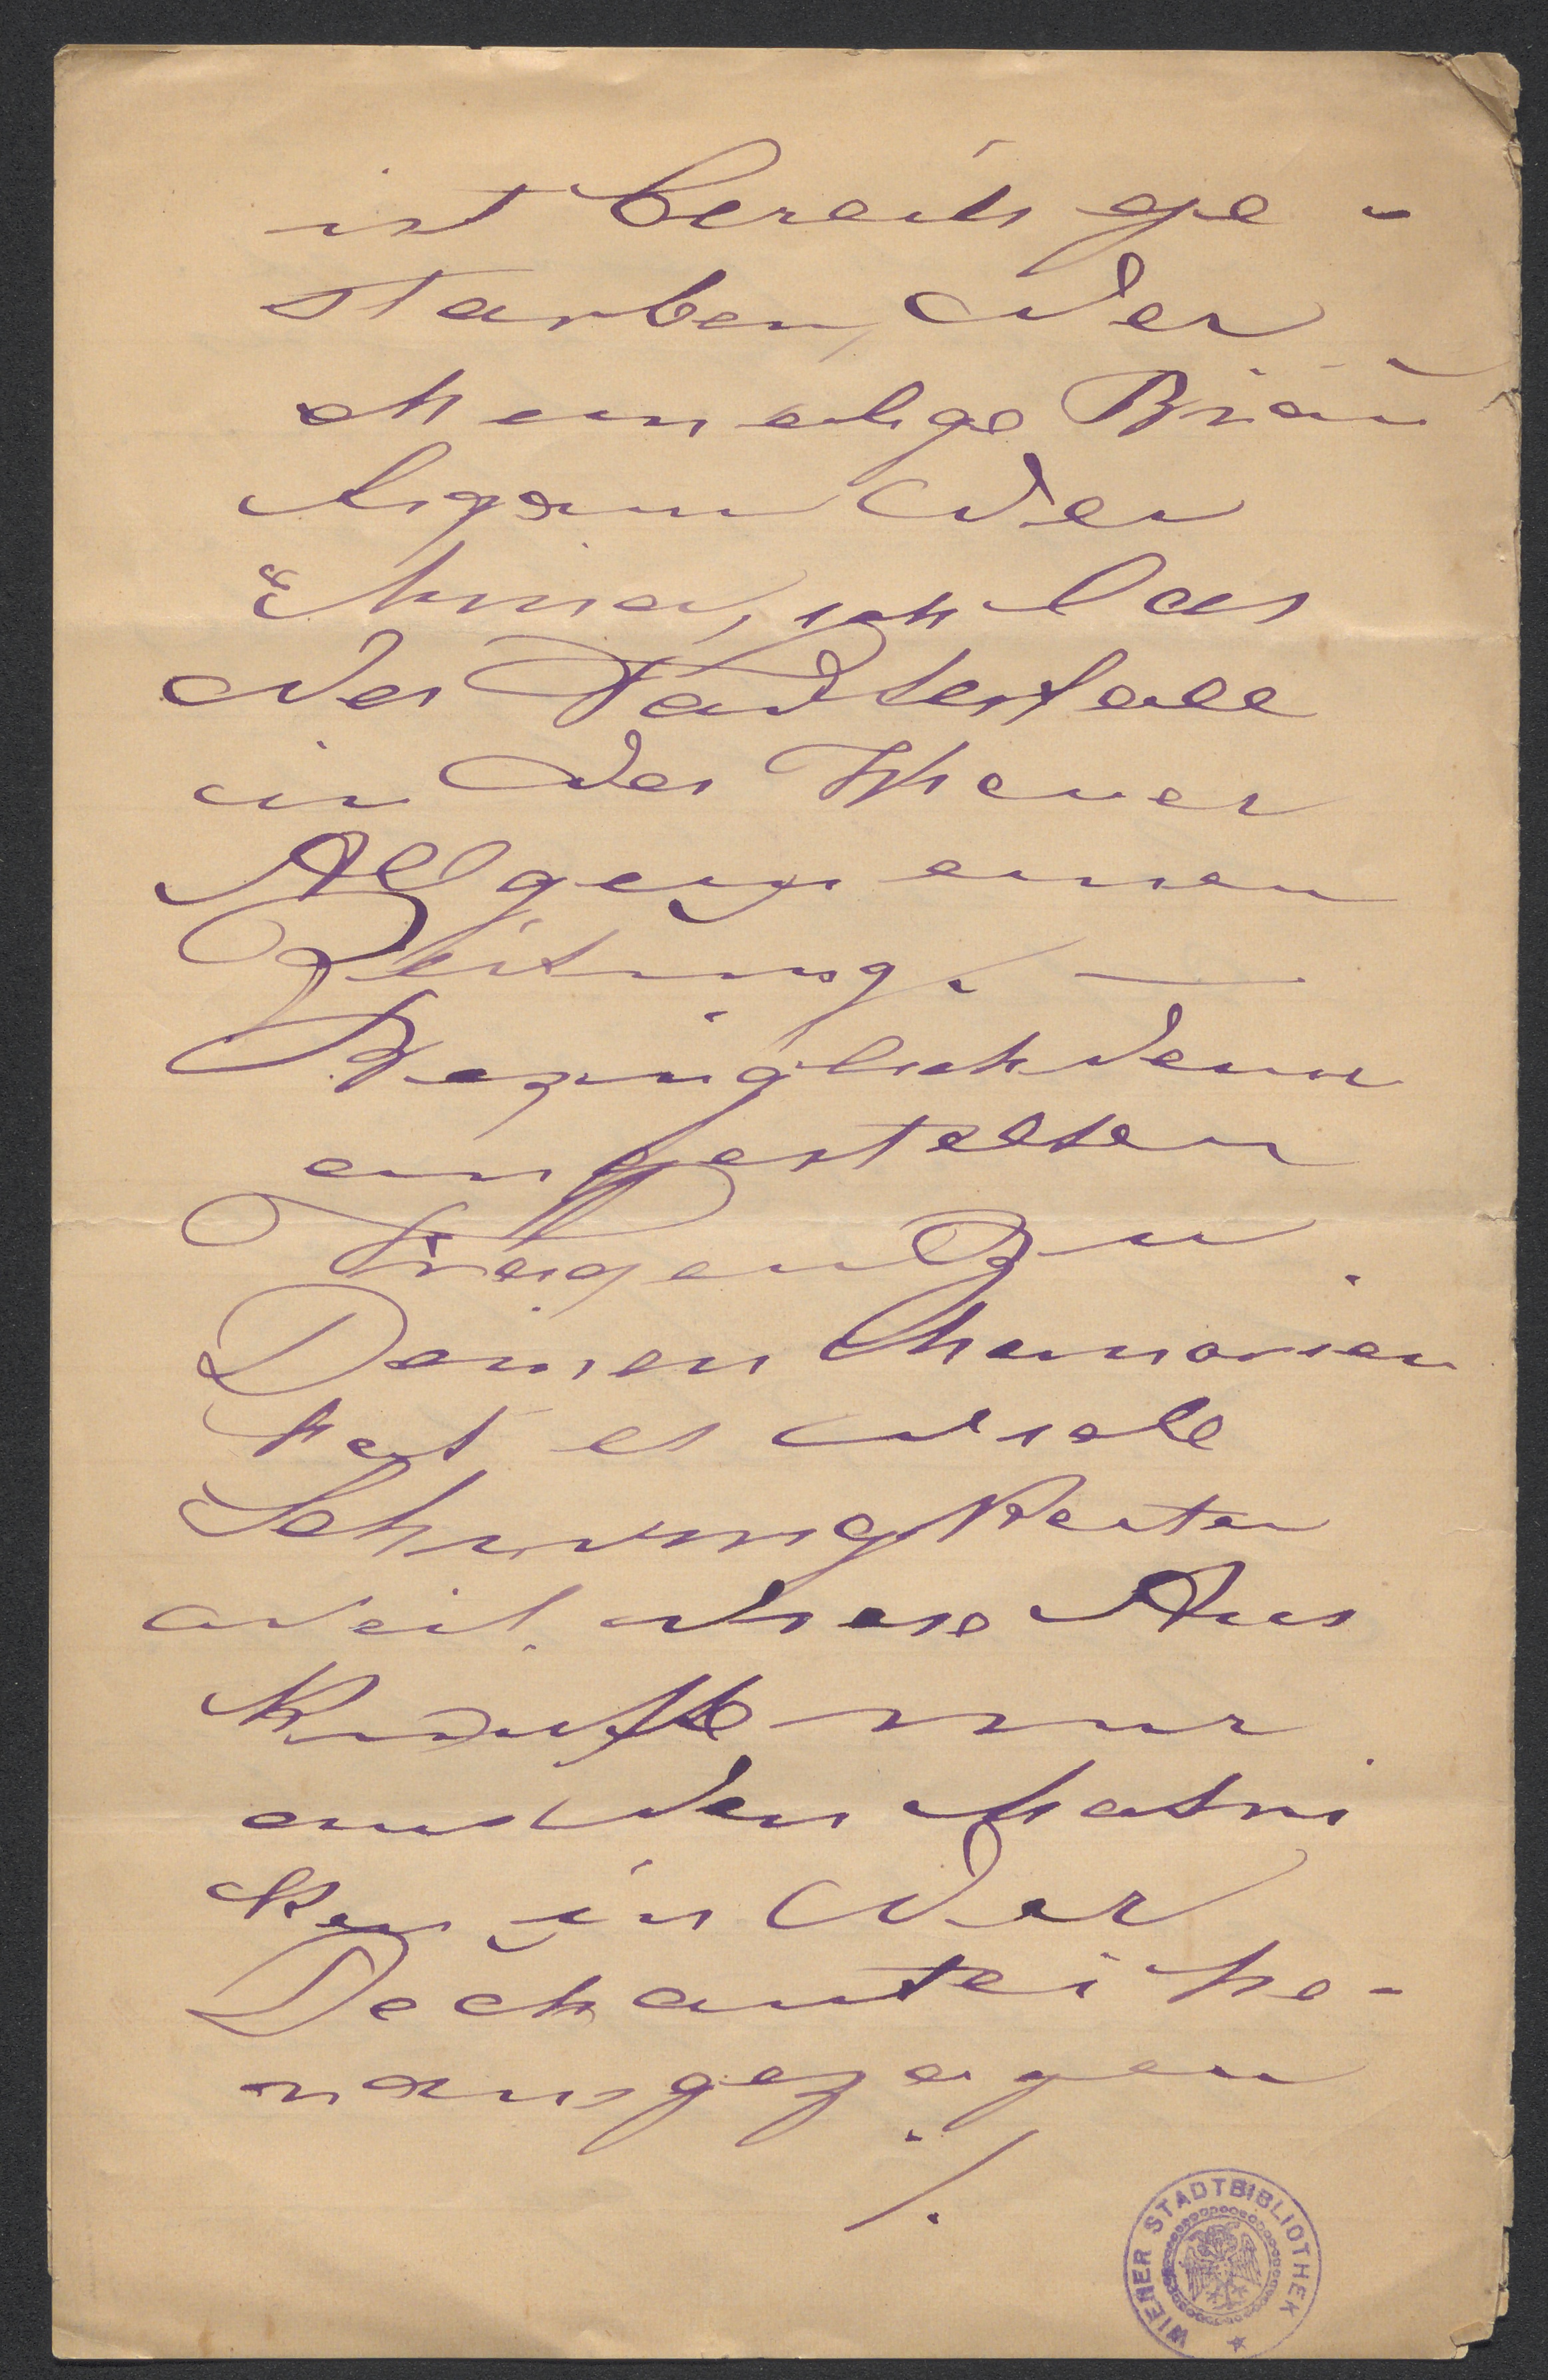 ist bereits ge-
storben, der
ehemalige Bräu
tigam der
Ehner, ich las
den Todesfall
in der Wiener
Allgemeinen
Zeitung. —
Bezüglich denn
angestellten
Fragen zu
Deinen Memoiren
hat es viele
Schwierigkeiten
weil diese Aus
künfte nur
aus den Matri
ken in der
Dechantei he-
rausgezogen
/.
WIENER STADTBIBLIOTHEK